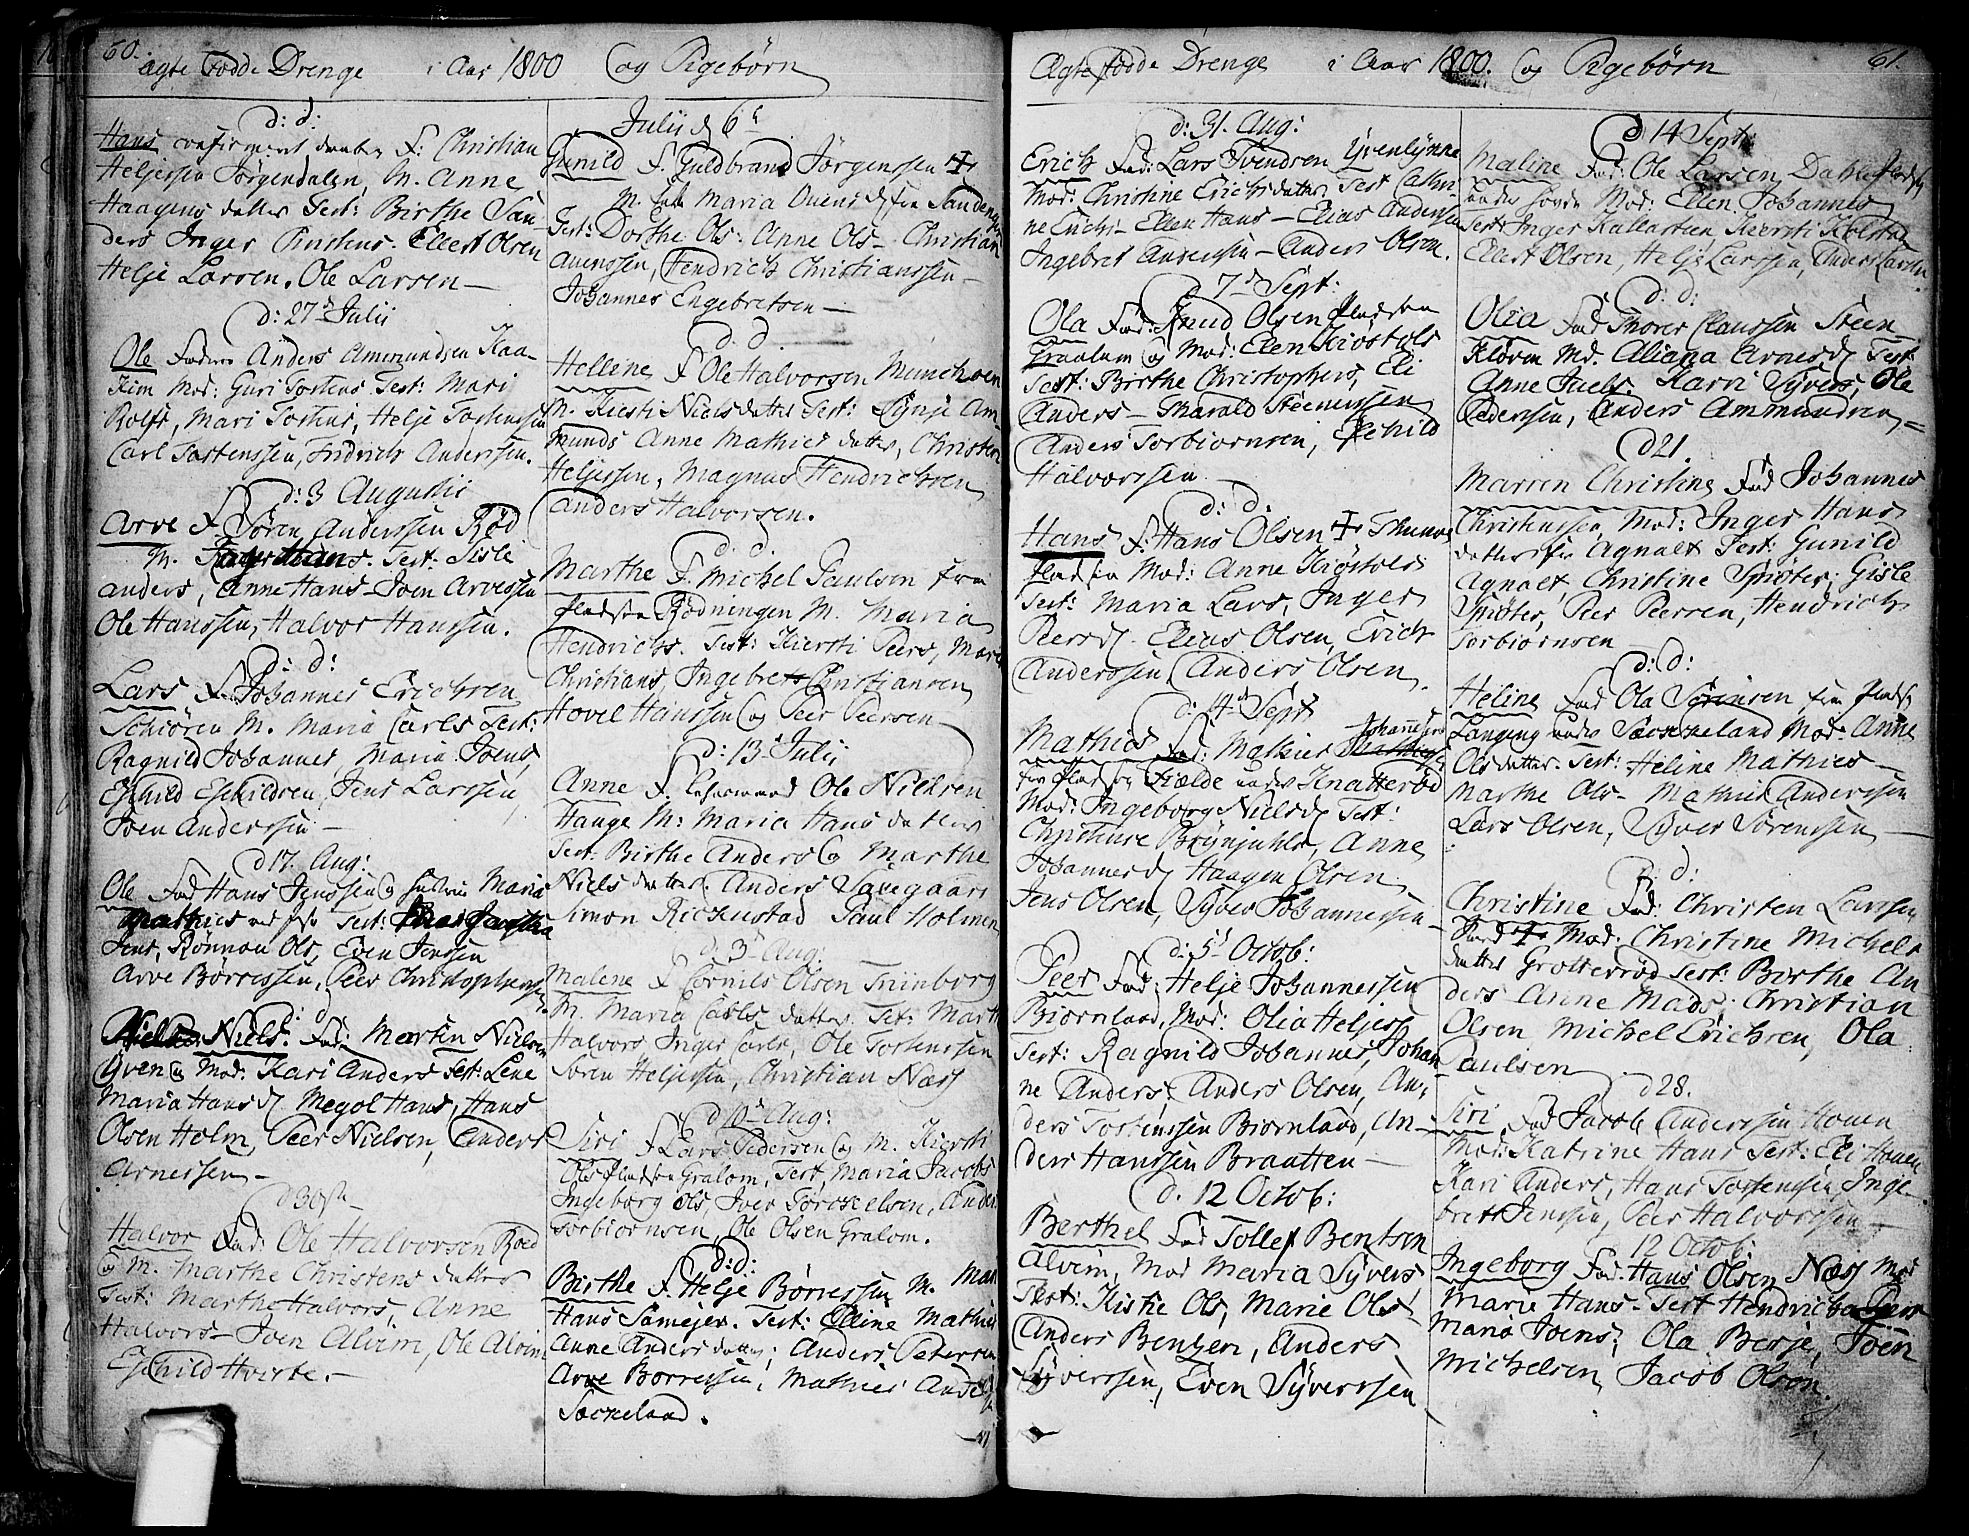 60.
Ægte Fødde Drenge i Aar 1800 og Pigebörn
d: d:
Hans confirmert døbt F: Christian
Heljersen Jörgendalen, M. Anne
Haagens datter Test: Birthe San-
ders Inger Ellert Olsen
Helje Larsen. Ole Larsen —
d: 27 Julii
Ole Fader Anders Ammundsen Kaa-
Kim Mod: Guri Tostens Test: Mari
Rolfs, Mari Tostens, Helje Tostenssen
Carl Tostenssen, Fridrich Anderssen.
d: 3 Augustii
Arve F. Sören Anderssen Röd
M. Test: Sisle
anders, Anne Hans- Joen Arvessen
Ole Hanssen, Halvor Hanssen.
d: d:
Lars F. Johannes Erichsen
Schiören M. Maria Carls Test:
Ragnild Johannes, Maria Joens,
Eschild Eschildsen, Jens Larssen,
Joen Anderssen —
d 17. Aug:
Ole Fad Hans Jenssen og Maria
Mathies Test:
Jens, Rönnau Ols, Even Jenssen
Arve Borressen, Peer Christophersen
d: d
Niels. Fad: Marten Nielsen
Yven og Mod: Kari Anders Test: Lene
Maria Hans d. Megol Hans, Hans
Olsen Holm, Peer Nielsen, Anders
Arnessen —
d 30 st
Halvor Fad: Ole Halvorsen Roed
og M. Marthe Christens datter
Test: Marthe Halvors, Anne
Halvors — Joen Alvim, Ole Alvim
Eschild Hvirte. —
Julii d 6t
Gunild F. Guldbrand Jörgenssen +
M. Maria Ouens d. fra Sandeng
Test: Dorthe Ols: Anne Ols- Christian
Auenssen, Hendrich Christianssen —
Johannes Engebretsen —
d: d
Helline F Ole Halvorsen Munchoen
M. Kiesti Niels datter Test: Synje Am-
munds Anne Mathies datter, Christen
Heljessen, Magnus Hendrichsen
Anders Halvorsen.
d: d:
Marthe F. Michel Paulsen fra
pladsen Rödningen M. Maria
Hendrichs. Test: Kiersti Peers, Mari
Christians, Ingebret Christiansen
Hovel Hanssen og Peer Peersen —
d: 13 Julii
Anne F. Ole Nielsen
Hauge M: Maria Hans datter
Test: Birthe Anders og Marthe
Niels datter. Anders Saugaar
Simon Rickustad Paul Holmen
d: 3 Aug:
Malene F Cornils Olsen Trinborg
M. Maria Carls datter Test: Marth
Halvors Inger Carls, Ole Tostenssen
Sören Heljessen, Christian Næss
d 10 Aug:
Siri F Lars Pedersen og M. Kiersti
Ols Pladsen Gralom, Test, Maria Jacobs
Ingeborg Ols, Iver Torckelsen, Anders
Torbiornsen, Ole Olsen Gralom.
d: d:
Birthe F. Helje Börressen M. Mari
Hans Samejer. Test: Eline Mathies
Anne Anders datter, Anders Petersen
Arve Borressen, Mathies Anders
Sackeland.
61.
Ægte fødde Drenge i Aar 1800. og Pigebörn
d: 31. Aug:
Erich Fad: Lars Svendsen Yvenlynne
Mod: Christine Erichsdatter Test Cathri-
ne Erichs- Ellen Hans — Elias Andersen
Ingebret Anderssen — Anders Olsen.
7de Sept:
Ola Fad: Knud Olsen pladsen
Graalum og Mod: Elen Kiöstols
Test: Birthe Christophers, Eli
Anders — Tharald Steenerssen
Anders Torbiornsen, Eschild
Halvorssen
d: d:
Hans F: Hans Olsen + Thune
pladsen Mod: Anne Kiöstols
Test: Maria Lars, Inger
Peers d. Elias Olsen, Erich
Anderssen Anders Olsen
d: 4de Sept
Mathies Fad: Mathies Johannessen
fra pladsen Fielde under Knatteröd
Mod: Ingeborg Niels d Test:
Christense Brynjuhls, Anne
Johannes d Haagen Olsen
Jens Olsen, Syver Johannessen —
d: 5t Octob:
Peer Fad: Helje Johannessen
Biornland, Mod: Olia Heljers
Test: Ragnild Johannes, Johan-
ne Anders, Anders Olsen, An-
ders Tostenssen Biornland, An-
ders Hanssen Braatten —
d. 12 Octob:
Berthel Fad Tollef Bentsen
Alvim, Mod Maria Syvers
Test: Kistie Ols, Marie Ols
Anders Bentzen, Anders
Syverssen, Even Syverssen
d 14 Sept:
Maline Fad: Ole Larsen Dahle
under Mod: Ellen Johannes
Test: Inger Kallastien, Kiersti Kolstad
Ellert Olsen, Helje Larssen, Anders Larsen.
d: d:
Olia Fad Thorer Claussen Steen
Klöven Md. Aliana Arnes d Test
Anne Juels, Karri Syvers, Ole
Pederssen, Anders Ammundsen
d 21.
Marren Christine Fad Johannes
Christenssen, Mod: Inger Hans
datter fra Agnalt Test: Gunild
Agnalt, Christine Spröter, Gisle
Spröter, Peer Peersen, Hendrich
Torbiornsen
d: d:
Heline Fad Ola Sörensen fra pladsen
Langeng under Sackeland Mod Anne
Olsdatter. Test: Heline Mathies —
Marthe Ols- Mathies Anderssen
Lars Olsen, Syver Sörenssen —
d: d:
Christine Fad: Christen Larssen
+ Mod: Christine Michels
datter Grotteröd Test: Birthe An
ders Anne Mads, Christian
Olsen Michel Erichsen, Ola
Paulsen
d 28.
Siri Fad Jacob Anderssen Houen
Mod: Katrine Hans Test: Eli Houen
Kari Anders, Hans Tostenssen, Inge-
bret Jenssen, Peer Halvorssen —
12 Octob:
Ingeborg Fad: Hans Olsen Næss Mod
Marie Hans- Test Hendricha Peers
Maria Joens, Ola Berje, Joen
Michelsen, Jacob Olsen.